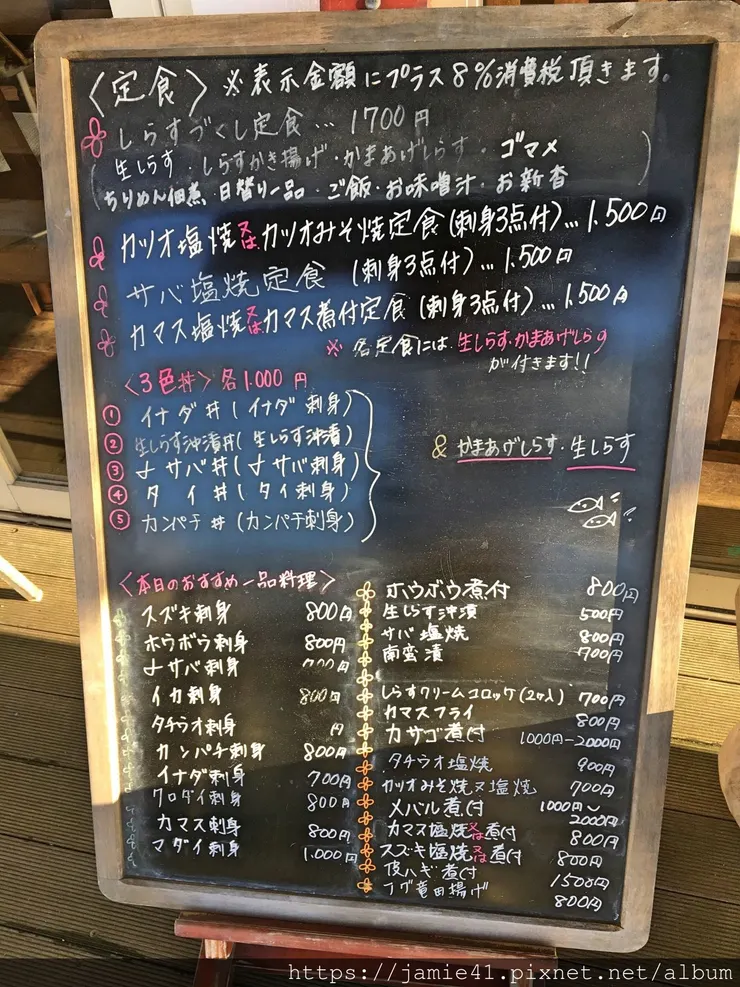 〈定食〉 ※表示金額にプラス8%消費税頂きます。
しらすづくし定食… 1700円
(生しらす・しらすかき揚げ・かまあげしらす・ゴマメ
ちりめん佃煮 日替り一品・ご飯・お味噌汁・お新香)
カツオ塩焼又はカツオみそ焼定食(刺身3点付)…1.500円
サバ塩焼定食 (刺身3点付)…1.500円
カマス塩焼又はカマス煮付定食(刺身3点付)…1.500円
※ 各定食には、生しらす・かまあげしらす
が付きます!!
〈3色丼〉各1.000円
① イナダ丼(イナダ刺身)
② 生しらす沖漬丼(生しらす沖漬)
③ 〆サバ丼(〆サバ刺身)
④ タイ丼(タイ刺身)
⑤ カンパチ丼(カンパチ刺身)
& かまあげしらす・生しらす
〈本日のおすすめ一品料理〉
スズキ刺身 800円
ホウボウ刺身 800円
〆サバ刺身 700円
イカ刺身 800円
タチウオ刺身 円
カンパチ刺身 800円
イナダ刺身 700円
クロダイ刺身 800円
カマス刺身 800円
マダイ刺身 1.000円
ホウボウ煮付 800円
生しらす沖漬 500円
サバ塩焼 800円
南蛮漬 700円
しらすクリームコロッケ(2ヶ入) 700円
カマスフライ 800円
カサゴ煮付 1000円-2000円
タチウオ塩焼 900円
カツオみそ焼又塩焼 700円
メバル煮付 1000円〜
2000円
カマス塩焼又は煮付 800円
スズキ塩焼又は煮付 800円
皮ハギ煮付 1500円
フグ竜田揚げ 800円
https://jamie41.pixnet.net/album